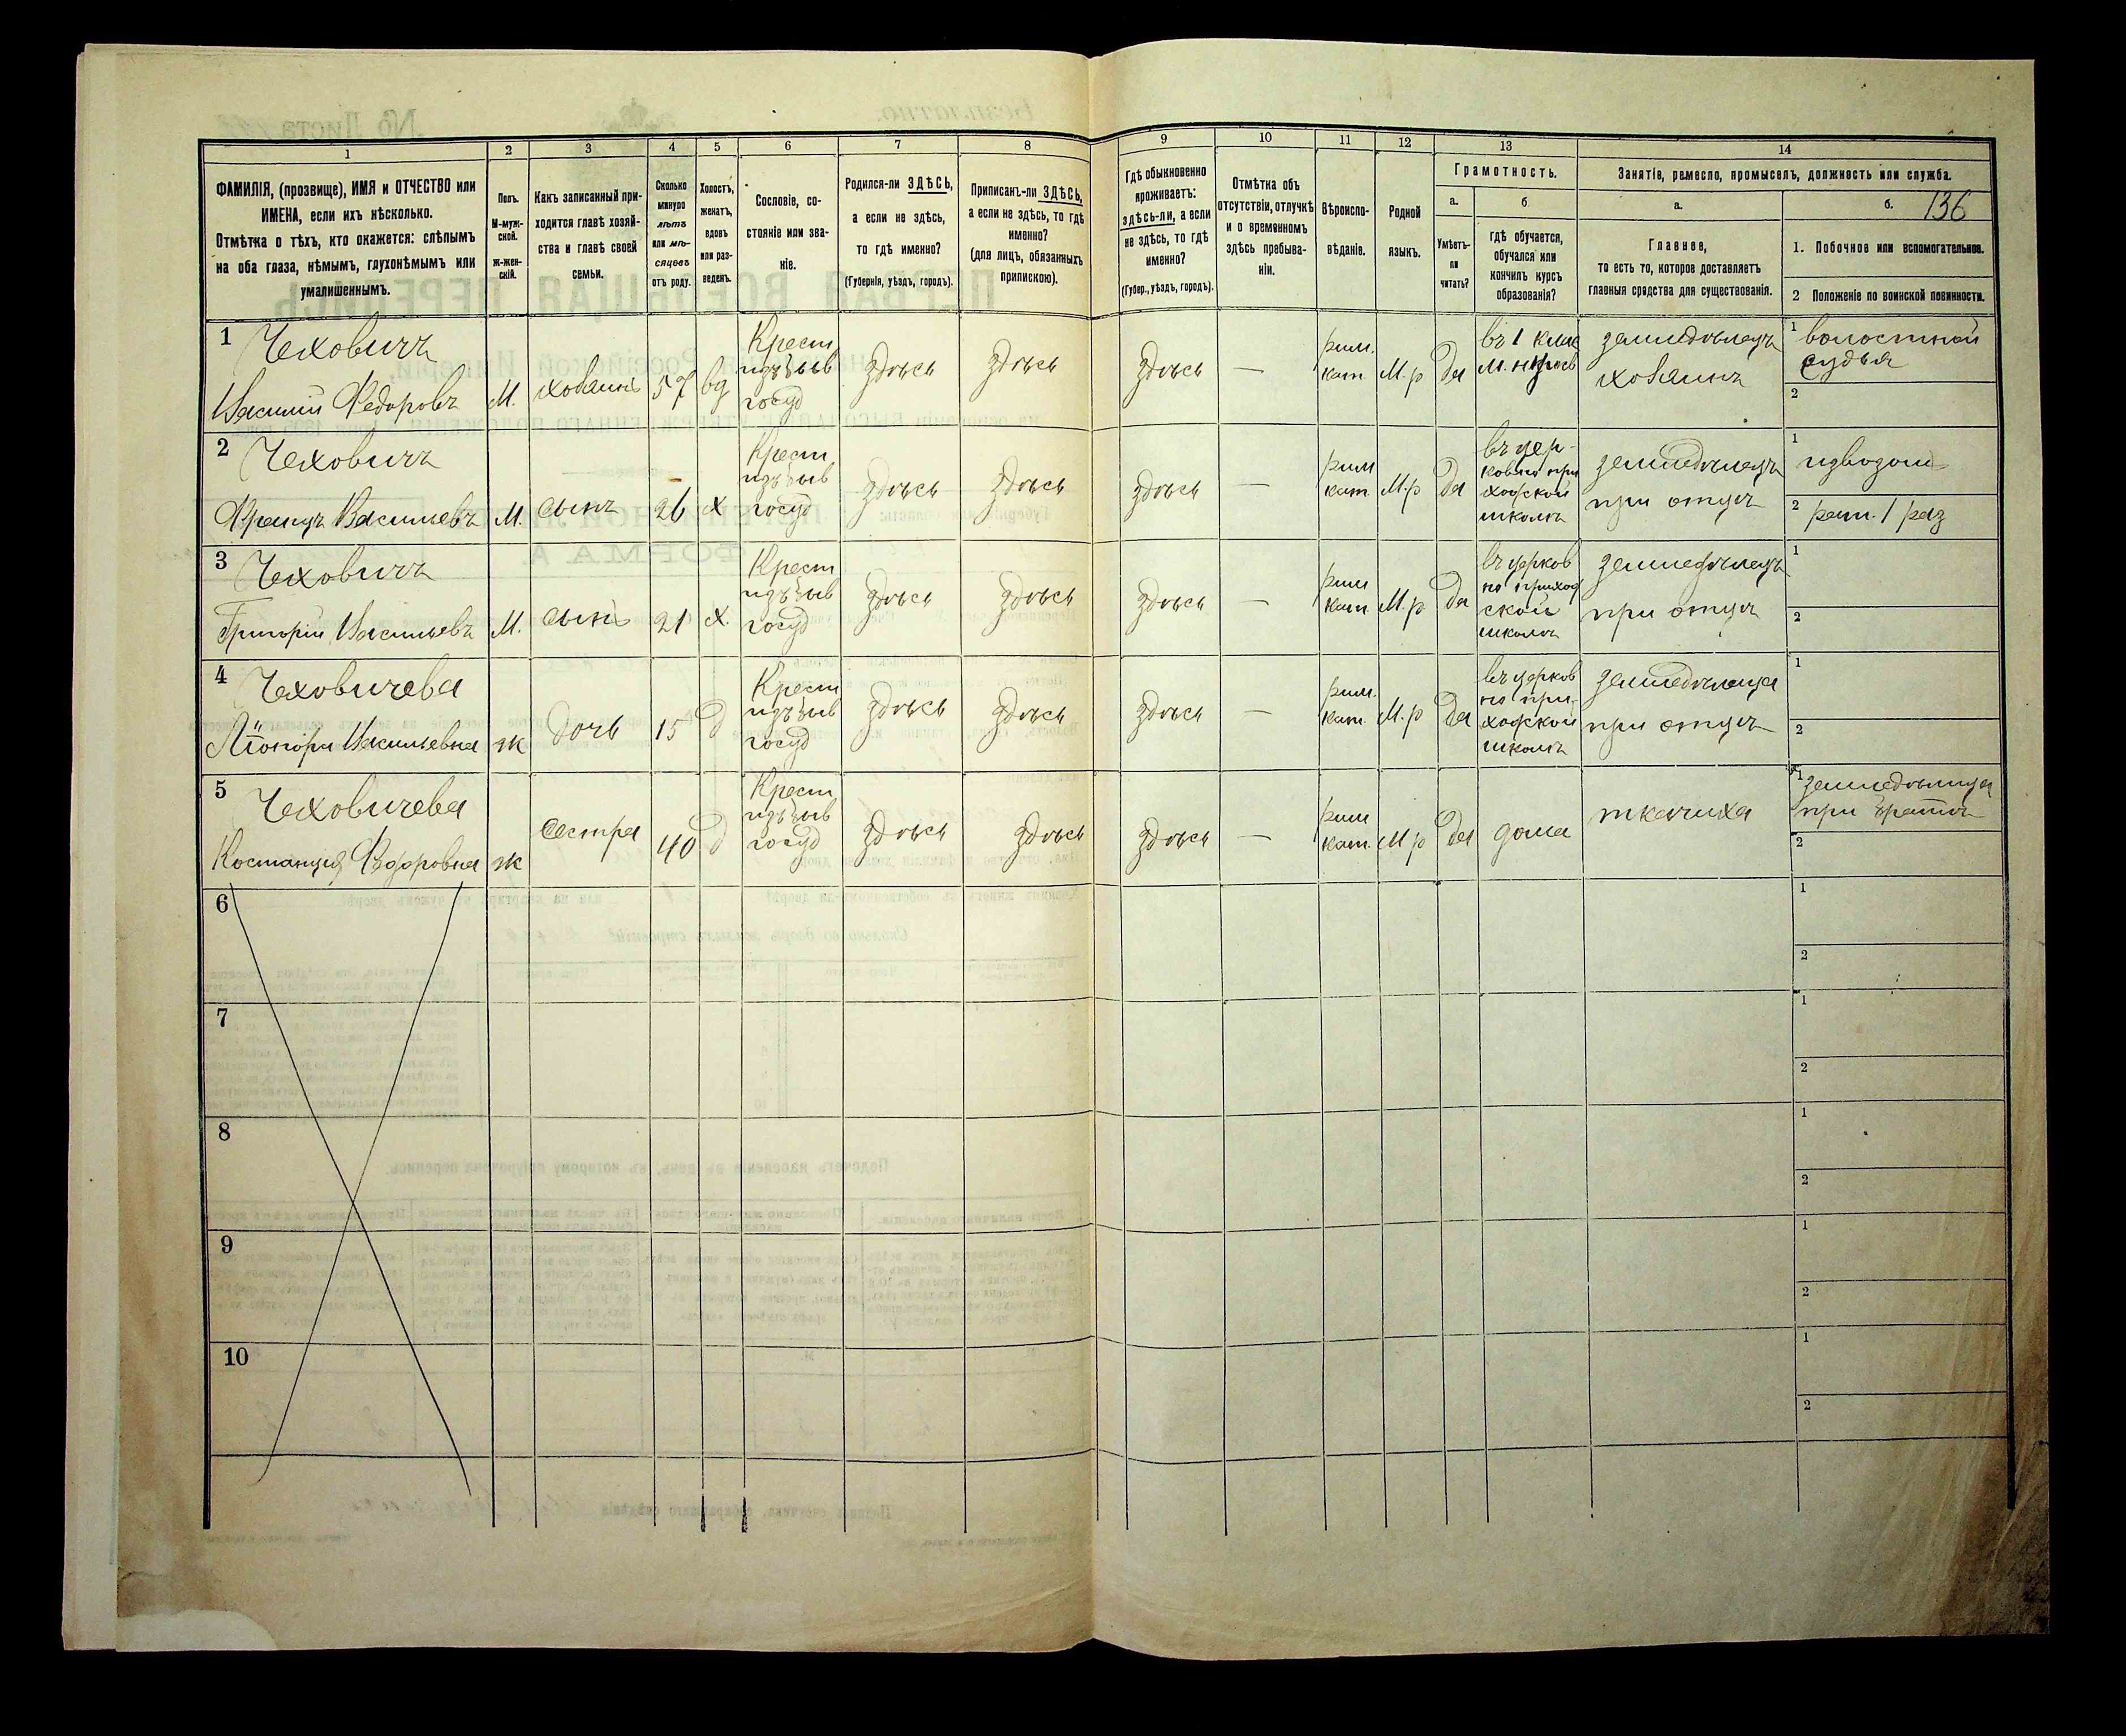 1 2 3 4 5 6 7 8 9 10 11 12 13 14
ФАМИЛІЯ, (прозвище), ИМЯ и ОТЧЕСТВО или
ИМЕНА, если ихъ нѣсколько.
Отмѣтка о тѣхъ, кто окажется: слѣпымъ
на оба глаза, нѣмымъ, глухонѣмымъ или
умалишеннымъ.
Полъ.
М-муж-
ской.
Ж-жен-
скій.
Какъ записанный при-
ходится главѣ хозяй-
ства и главѣ своей
семьи.
Сколько
минуло
лѣтъ
или мѣ-
сяцевъ
отъ роду.
Холостъ,
женатъ,
вдовъ
или раз-
веденъ.
Сословіе, со-
стояніе или зва-
ніе.
Родился-ли ЗДѢСЬ,
а если не здѣсь,
то гдѣ именно?
(Губернія, уѣздъ, городъ).
Приписанъ-ли ЗДѢСЬ,
а если не здѣсь, то гдѣ
именно?
(для лицъ, обязанныхъ
припискою).
Гдѣ обыкновенно
проживаетъ:
здѣсь-ли, а если
не здѣсь, то гдѣ
именно?
(Губер., уѣздъ, городъ).
Отмѣтка объ
отсутствіи, отлучкѣ
и о временномъ
здѣсь пребыва-
ніи.
Вѣроиспо-
вѣданіе.
Родной
языкъ.
Грамотность.
а.
Умѣетъ-
ли
читать?
б.
гдѣ обучается,
обучался или
кончилъ курсъ
образованія?
Занятіе, ремесло, промыселъ, должность или служба.
а.
Главное,
то есть то, которое доставляетъ
главныя средства для существованія.
б. 136
1. Побочное или вспомогательное.
2 Положеніе по воинской повинности.
1 Чеховичъ
Василій Федоровъ
М.
хозяинъ
57
вд
Крест
изъ быв
госуд
здѣсь
здѣсь
здѣсь
—
рим.
кат
М.р
да
въ 1 клас
земледѣлецъ
хозяинъ
1 волостной
судья
2
2 Чеховичъ
Францъ Васильевъ
М.
сынъ
26
х
Крест
изъ быв
госуд
здѣсь
здѣсь
здѣсь
—
рим
кат
М.р
да
въ цер-
ковно при
ходской
школѣ
земледѣлецъ
при отцѣ
1 извозом
2 рат. 1 раз
3 Чеховичъ
Григорій Васильевъ
М.
сынъ
21
х.
Крест
изъ быв
госуд
здѣсь
здѣсь
здѣсь
—
рим
кат
М.р
да
въ церков
но приход
ской
школѣ
земледѣлецъ
при отцѣ
1
2
4 Чеховичева
Васильевна
ж
дочь
15
д
Крест
изъ быв
госуд
здѣсь
здѣсь
здѣсь
—
рим.
кат.
М.р
да
въ церков
но при
ходской
школѣ
земледѣлица
при отцѣ
1
2
5 Чеховичева
Костанція Федоровна
ж
сестра
40
д
Крест
изъ быв
госуд
здѣсь
здѣсь
здѣсь
—
рим
кат.
М р
да
дома
ткачиха
1 земледѣлица
при братѣ
2
6
1
2
7
1
2
8
1
2
9
1
2
10
1
2